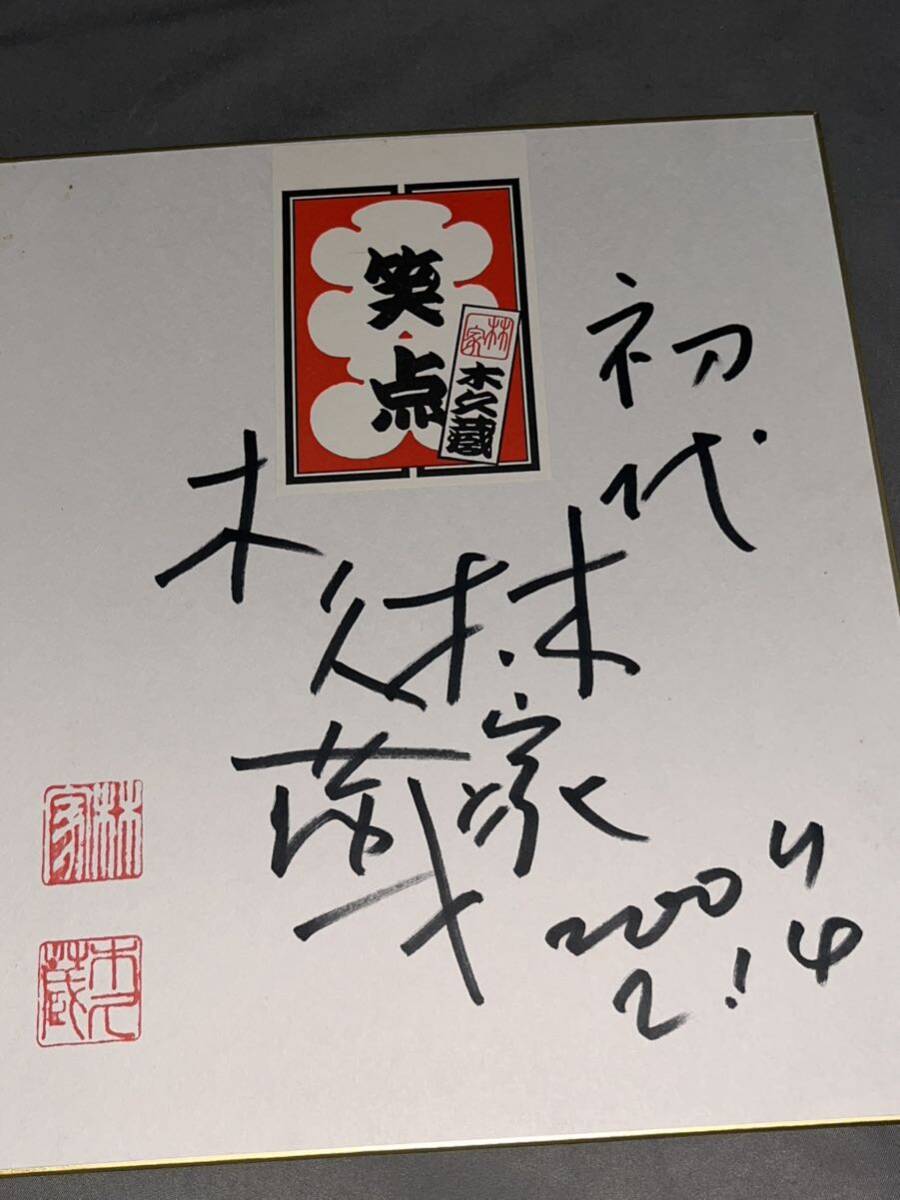 笑点
林家
木久蔵
初代
林家
木久蔵
2004
2.14
林家
木久蔵